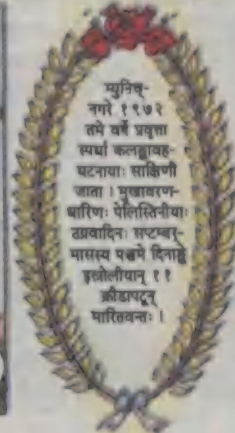 म्युनिच्-
नगरे १९७२
तमे वर्षे प्रवृत्ता
स्पर्धा कलङ्कावह-
घटनायाः साक्षिणी
जाता । मुखावरण-
धारिणः पेलिस्तिनीयाः
उग्रवादिनः सप्टम्बर्-
मासस्य पञ्चमे दिनाङ्के
इस्रेलीयान् ११
क्रीडापटून्
मारितवन्तः ।